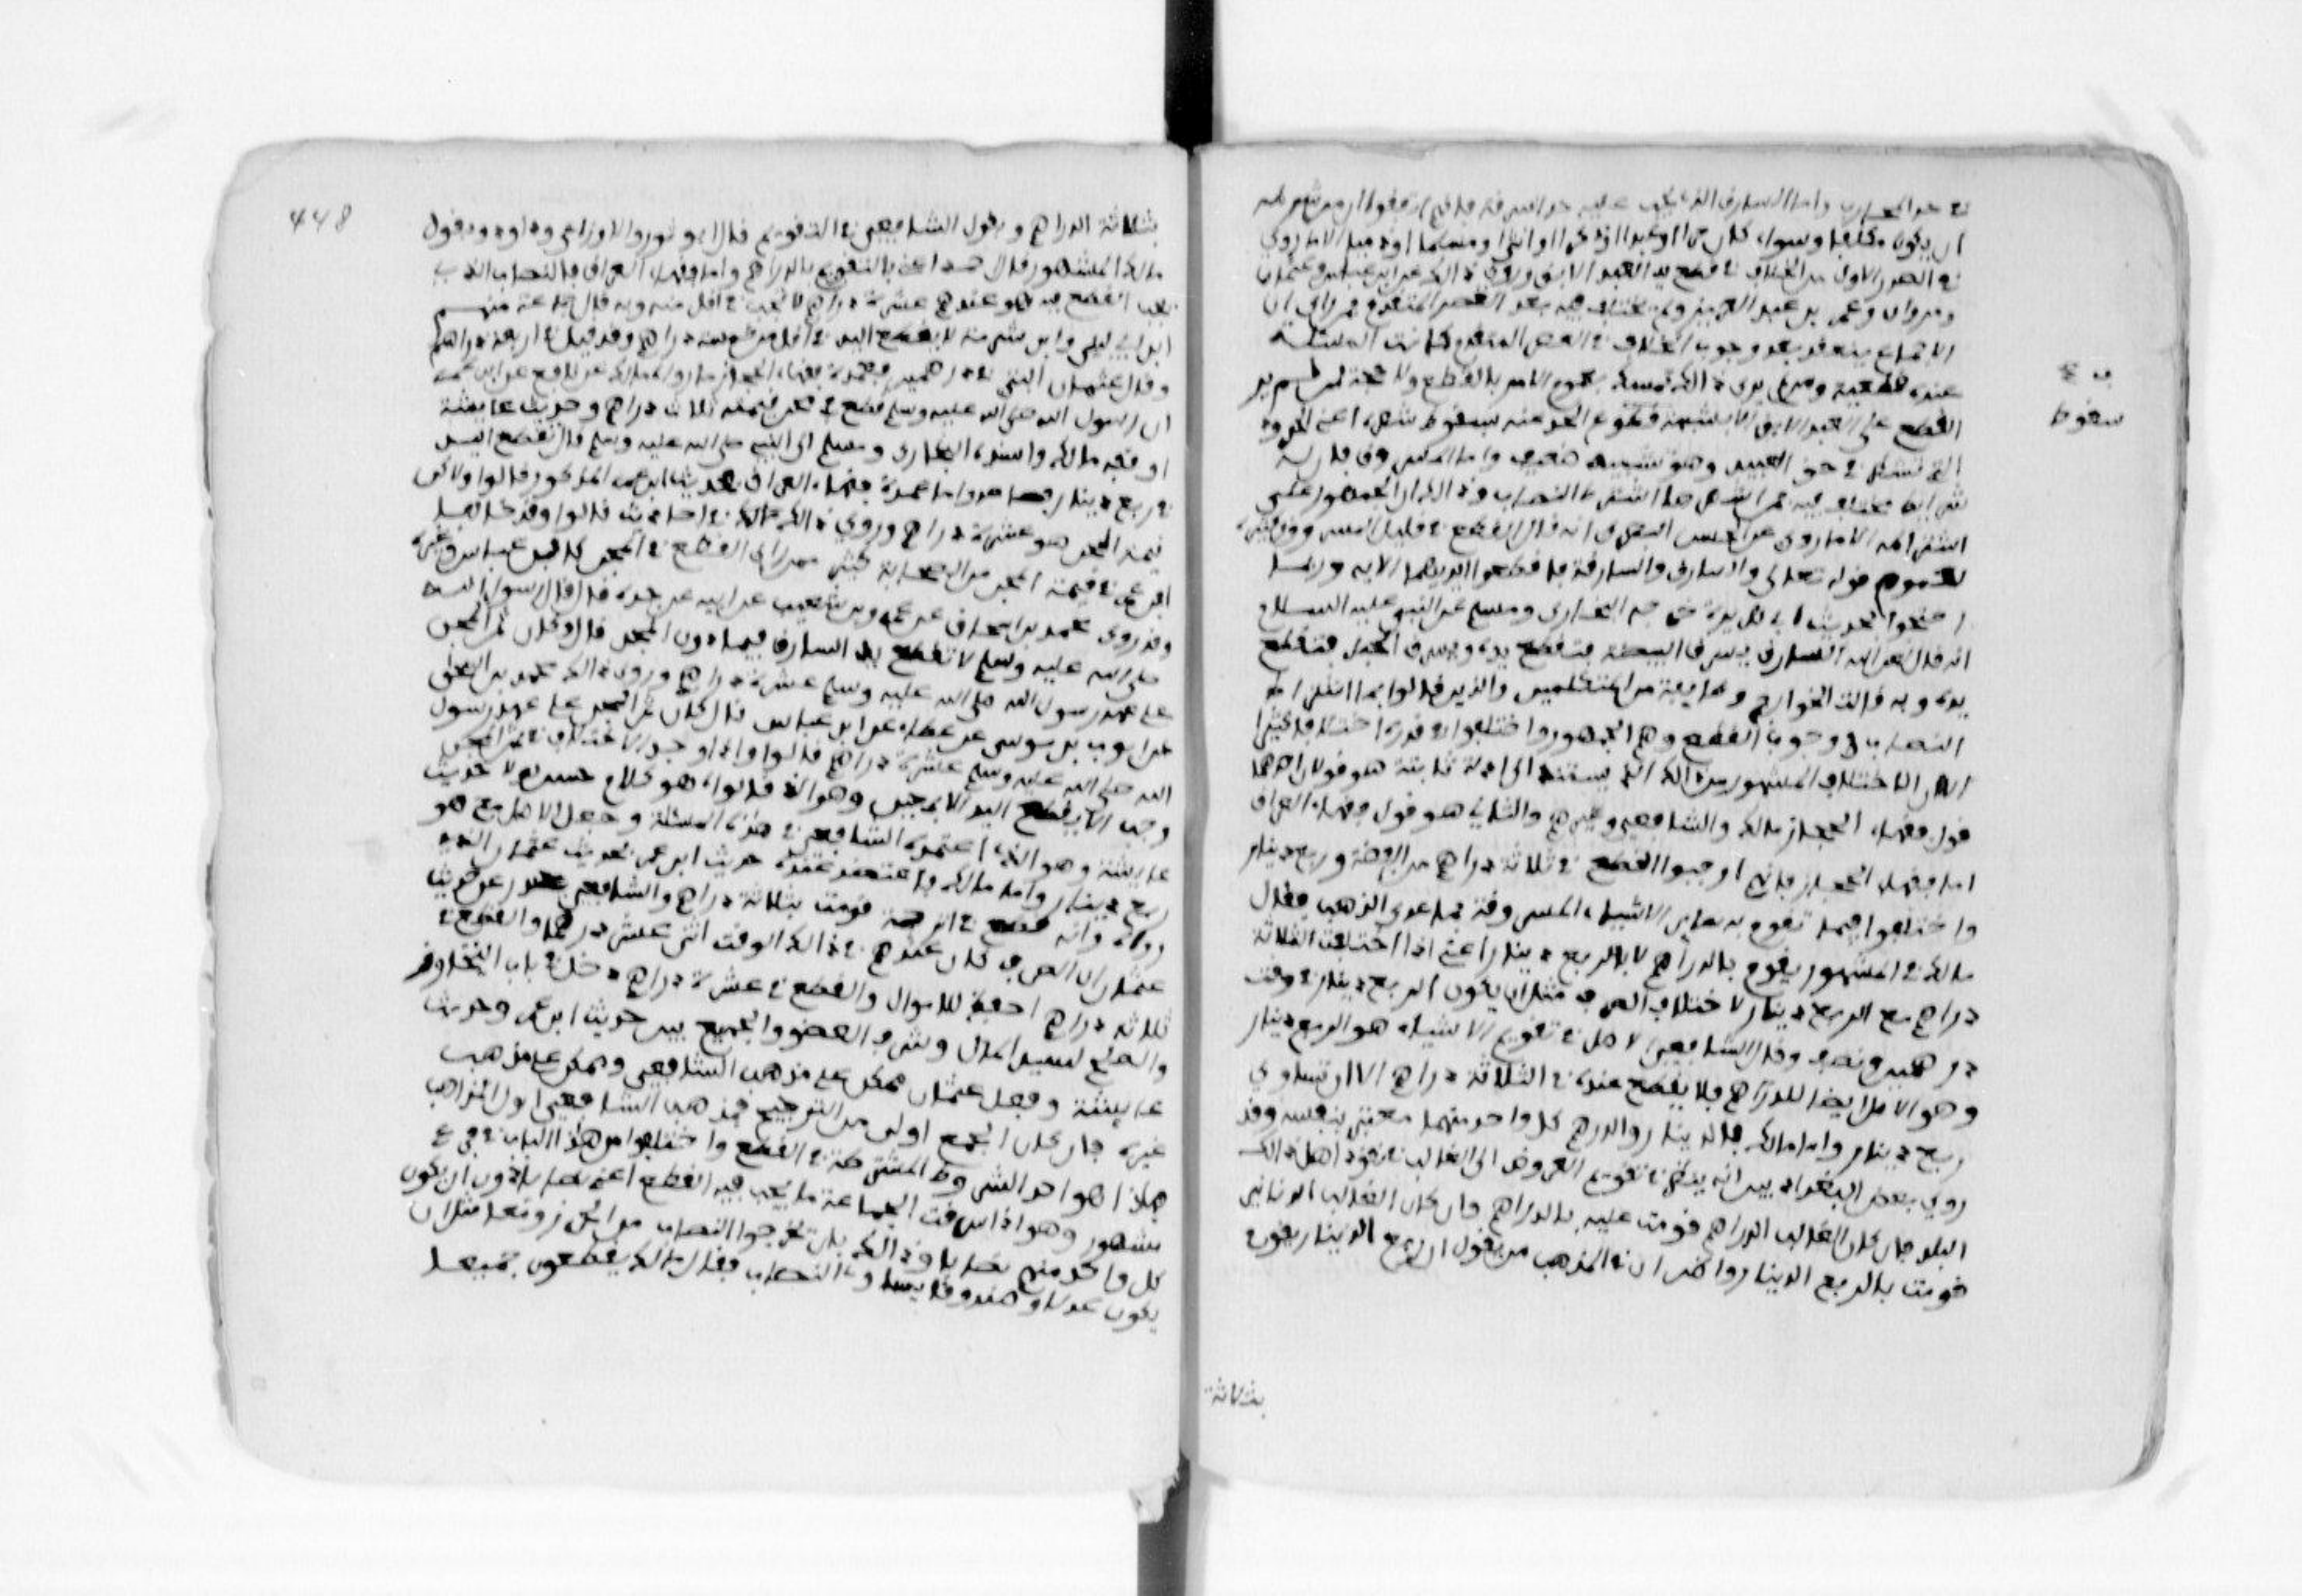 في حد المحارب واما السارق الذي يجب عليه حد السرقة فانهم اتفقوا ان من شرطه
ان يكون مكلفا وسواء كان حرا او عبدا ذكرا او انثى او مسلما او ذميا الا ما روي
في الصدر الاول من الخلاف في قطع يد العبد الابق وروي ذالك عن ابن عباس وعثمان
ومروان وعمر بن عبد العزيز ولم يختلف فيه بعد العصر المتقدم فمن راى ان
الاجماع ينعقد بعد وجود الخلاف في العصر المتقدم كانت المسئلة
عنده قطعية ومن لم ير ذالك تمسك بعموم الامر بالقطع ولا حجة لمن لم ير
القطع على العبد الابق الا تشبيهه وقوع الحد عنه بسقوط شطره اعني الحدود
التي تتشطر في حق العبيد وهو تشبيه ضعيف واما المسروق فان له
شرايط مختلف فيها فمن اشهرها اشتراط النصاب وذالك ان الجمهور على
اشتراطه الا ما روي عن الحسن البصري انه قال القطع في قليل المسروق وكثيره
لعموم قوله تعالى والسارق والسارقة فاقطعوا ايديهما الاية وربما
احتجوا بحديث ابي هريرة خرجه البخاري ومسلم عن النبي عليه السلام
انه قال لعن الله السارق يسرق البيضة فتقطع يده ويسرق الحبل فتقطع
يده وبه قالت الخوارج وطايفة من المتكلمين والذين قالوا باشتراط
النصاب في وجوب القطع وهم الجمهور اختلفوا في قدره اختلافا كثيرا
الا ان الاختلاف المشهور من ذالك الذي يستند الى ادلة ثابتة هو قولان احدهما
قول فقهاء الحجاز مالك والشافعي وغيرهم والثاني هو قول فقهاء العراق
اما فقهاء الحجاز فانهم اوجبوا القطع في ثلاثة دراهم من الفضة وربع دينار
واختلفوا فيما تقوم به ساير الاشياء المسروقة مما عدى الذهب فقال
مالك في المشهور يقوم بالدراهم لا بالربع دينار اعني اذا اختلفت الثلاثة
دراهم مع الربع دينار لاختلاف الصرف مثل ان يكون الربع دينار في وقت
درهمين ونصف وقال الشافعي الاصل في تقويم الاشياء هو الربع دينار
وهو الاصل ايضا للدراهم فلا يقطع عنده في الثلاثة دراهم الا ان تساوي
ربع دينار واما مالك فالدينار والدرهم كل واحد منهما معتبر بنفسه وقد
روى بعض البغداديين انه ينظر في تقويم العروض الى الغالب في نقود اهل ذالك
البلد فان كان الغالب الدراهم قومت عليه بالدراهم وان كان الغالب الدنانير
قومت بالربع الدينار واظن ان في المذهب من يقول ان ربع الدينار يقوم
ف ع
سقوط
بثلاثة
448
بثلاثة الدراهم وبقول الشافعي في التقويم قال ابو ثور والاوزاعي وداود وبقول
مالك المشهور قال احمد اعني بالتقويم بالدراهم واما فقهاء العراق فالنصاب الذي
يجب القطع فيه هو عندهم عشرة دراهم لا يجب في اقل منه وبه قال جماعة منهم
ابن ابي ليلى وابن شبرمة لا يقطع اليد في اقل من خمسة دراهم وقد قيل في اربعة دراهم
وقال عثمان البتي في درهمين فعمدة فقهاء الحجاز ما رواه مالك عن نافع عن ابن عمر
ان رسول الله صلى الله عليه وسلم قطع في مجن قيمته ثلاث دراهم وحديث عايشة
اوقفه مالك واسنده البخاري ومسلم الى النبي صلى الله عليه وسلم قال تقطع اليد
في ربع دينار فصاعدا واما عمدة فقهاء العراق فحديث ابن عمر المذكور قالوا ولاكن
قيمة المجن هو عشرة دراهم وروي ذالك في احاديث قالوا وقد خالف
ابن عمر في قيمة المجن من الصحابة كثير ممن راى القطع في المجن كابن عباس وغيره
وقد روى محمد بن اسحاق عن عمرو بن شعيب عن ابيه عن جده قال قال رسول الله
صلى الله عليه وسلم لا تقطع يد السارق فيما دون المجن قال وكان ثمن المجن
على عهد رسول الله صلى الله عليه وسلم عشرة دراهم وروى ذالك محمد بن اسحاق
عن ايوب بن موسى عن عطاء عن ابن عباس قال كان ثمن المجن على عهد رسول
الله صلى الله عليه وسلم عشرة دراهم قالوا واذا وجد الاختلاف في ثمن المجن
وجب الا يقطع اليد الا بيقين وهو الذي قالوه هو كلام حسن لولا حديث
عايشة وهو الذي اعتمده الشافعي في هذه المسئلة وجعل الاصل مع هو
ربع دينار واما مالك فاعتضد عنده حديث ابن عمر بحديث عثمان الذي
رواه وانه قطع في اترجة قومت بثلاثة دراهم والشافعي يعتذر عن حديث
عثمان ان الصرف كان عندهم في ذالك الوقت اثنى عشر درهما والقطع في
ثلاثة دراهم احفظ للاموال والقطع في عشرة دراهم دخل في باب التجاوز
والصفح ليسير المال وشرف العضو والجمع بين حديث ابن عمر وحديث
عايشة وفعل عثمان ممكن على مذهب الشافعي وممكن على مذهب
غيره فان كان الجمع اولى من الترجيح فمذهب الشافعي اولى المذاهب
فهاذا هو احد الشروط المشترطة في القطع واختلفوا من هذا الباب في فرع
مشهور وهو اذا سرقت الجماعة ما يجب فيه القطع اعني نصابا دون ان يكون
كل واحد منهم نصابا وذالك بان يخرجوا النصاب من الحرز معا مثل ان
يكون عدلا وصندوقا يساوي النصاب فقال مالك يقطعون جميعا